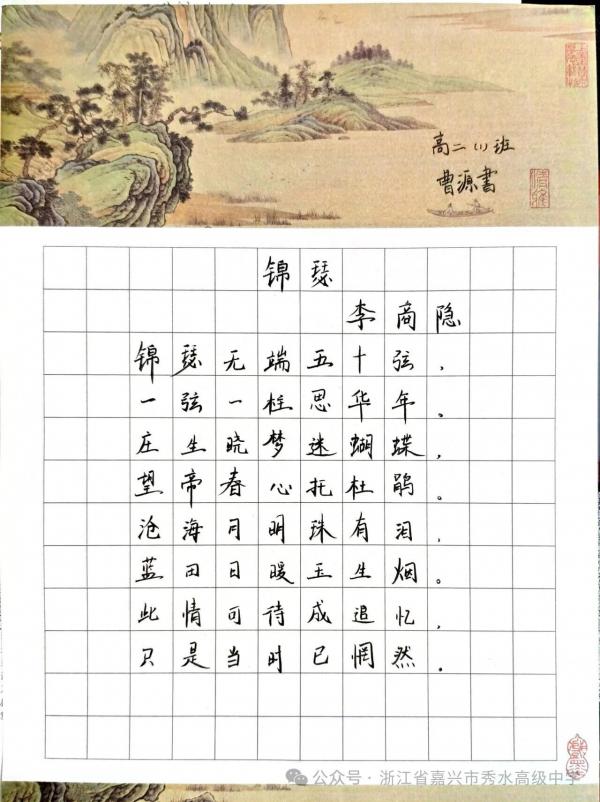 高二(1)班
曹源書
锦瑟
李商隐
锦瑟无端五十弦,
一弦一柱思华年。
庄生晓梦迷蝴蝶,
望帝春心托杜鹃。
沧海月明珠有泪,
蓝田日暖玉生烟。
此情可待成追忆,
只是当时已惘然。
公众号·浙江省嘉兴市秀水高级中学